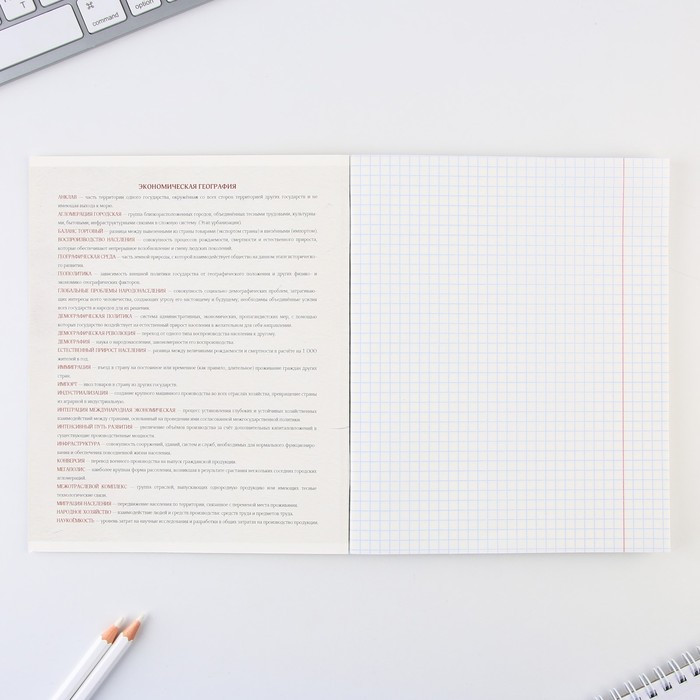 T
⌘
command
option
ЭКОНОМИЧЕСКАЯ ГЕОГРАФИЯ
АНКЛАВ — часть территории одного государства, окружённая со всех сторон территорией других государств и не
имеющая выхода к морю.
АГЛОМЕРАЦИЯ ГОРОДСКАЯ — группа близкорасположенных городов, объединённых тесными трудовыми, культурны-
ми, бытовыми, инфраструктурными связями в сложную систему.
БАЛАНС ТОРГОВЫЙ — разница между вывезенными из страны товарами (экспортом страны) и ввезёнными (импортом).
ВОСПРОИЗВОДСТВО НАСЕЛЕНИЯ — совокупность процессов рождаемости, смертности и естественного прироста,
которые обеспечивают непрерывное возобновление и смену людских поколений.
ГЕОГРАФИЧЕСКАЯ СРЕДА — часть земной природы, с которой взаимодействует общество на данном этапе историческо-
го развития.
ГЕОПОЛИТИКА — зависимость внешней политики государства от географического положения и других физико- и
экономико-географических факторов.
ГЛОБАЛЬНЫЕ ПРОБЛЕМЫ НАРОДОНАСЕЛЕНИЯ — совокупность социально-демографических проблем, затрагиваю-
щих интересы всего человечества, создающих угрозу его настоящему и будущему, необходимы объединённые усилия
всех государств и народов для их решения.
ДЕМОГРАФИЧЕСКАЯ ПОЛИТИКА — система административных, экономических, пропагандистских мер, с помощью
которых государство воздействует на естественный прирост населения в желательном для себя направлении.
ДЕМОГРАФИЧЕСКАЯ РЕВОЛЮЦИЯ — переход от одного типа воспроизводства населения к другому.
ДЕМОГРАФИЯ — наука о народонаселении, закономерности его воспроизводства.
ЕСТЕСТВЕННЫЙ ПРИРОСТ НАСЕЛЕНИЯ — разница между величинами рождаемости и смертности в расчёте на 1 000
жителей в год.
ИММИГРАЦИЯ — въезд в страну на постоянное или временное (как правило, длительное) проживание граждан других
стран.
ИМПОРТ — ввоз товаров в страну из других государств.
ИНДУСТРИАЛИЗАЦИЯ — создание крупного машинного производства во всех отраслях хозяйства, превращение страны
из аграрной в индустриальную.
ИНТЕГРАЦИЯ МЕЖДУНАРОДНАЯ ЭКОНОМИЧЕСКАЯ — процесс установления глубоких и устойчивых хозяйственных
взаимодействий между странами, основанный на проведении ими согласованной межгосударственной политики.
ИНТЕНСИВНЫЙ ПУТЬ РАЗВИТИЯ — увеличение объёмов производства за счёт дополнительных капиталовложений в
существующие производственные мощности.
ИНФРАСТРУКТУРА — совокупность сооружений, зданий, систем и служб, необходимых для нормального функциониро-
вания и обеспечения повседневной жизни населения.
КОНВЕРСИЯ — перевод военного производства на выпуск гражданской продукции.
МЕГАПОЛИС — наиболее крупная форма расселения, возникшая в результате срастания нескольких соседних городских
агломераций.
МЕЖОТРАСЛЕВОЙ КОМПЛЕКС — группа отраслей, выпускающих однородную продукцию или имеющих тесные
технологические связи.
МИГРАЦИЯ НАСЕЛЕНИЯ — передвижение населения по территории, связанное с переменой места проживания.
НАРОДНОЕ ХОЗЯЙСТВО — взаимодействие людей и средств производства: средств труда и предметов труда.
НАУКОЁМКОСТЬ — уровень затрат на научные исследования и разработки в общих затратах на производство продукции.